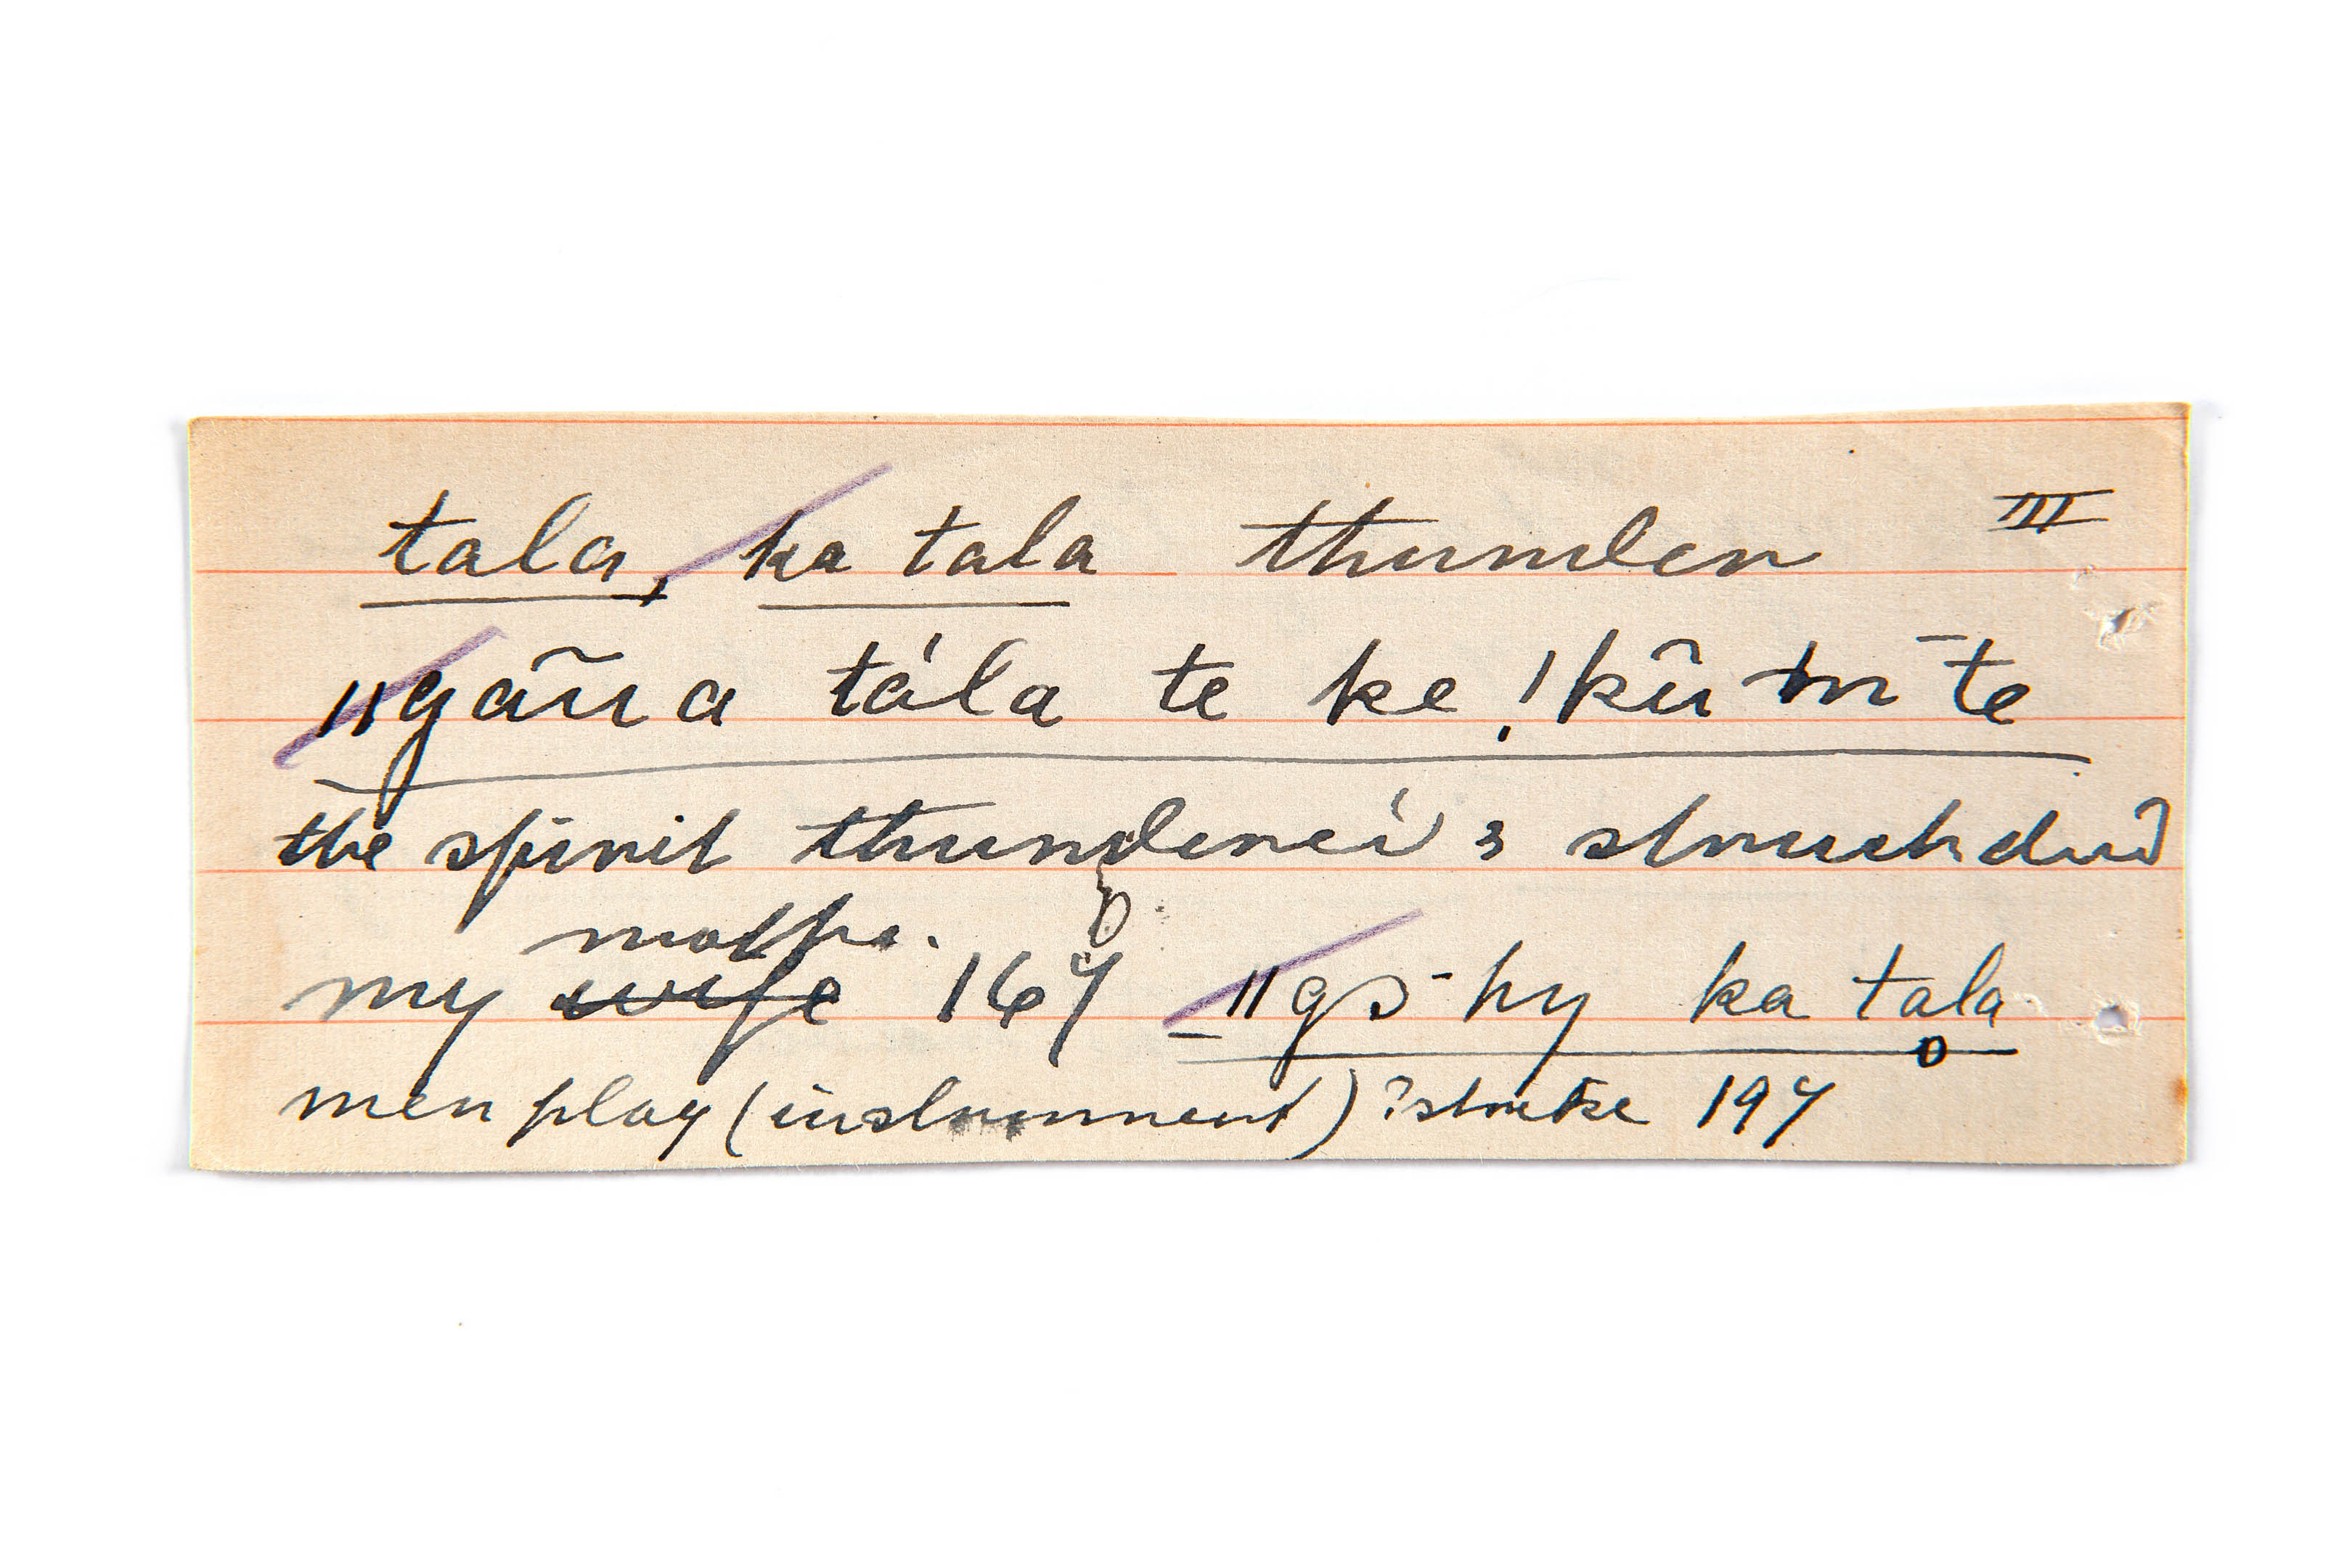 tala, ka tala thunder III
ǁgãũa tála te ke ! kũ m̄ te
the spirit thunderer's struck dead
mother.
my wife 167 ǁgɔ-hy ka tala
men play (instrument) ? strike 197